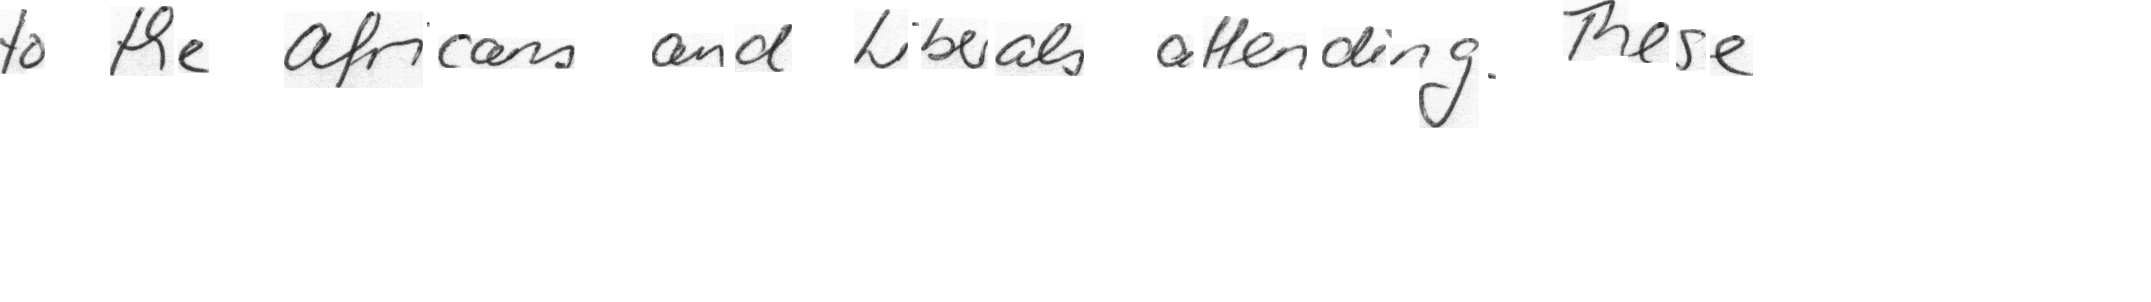 to the Africans and Liberals attending. These